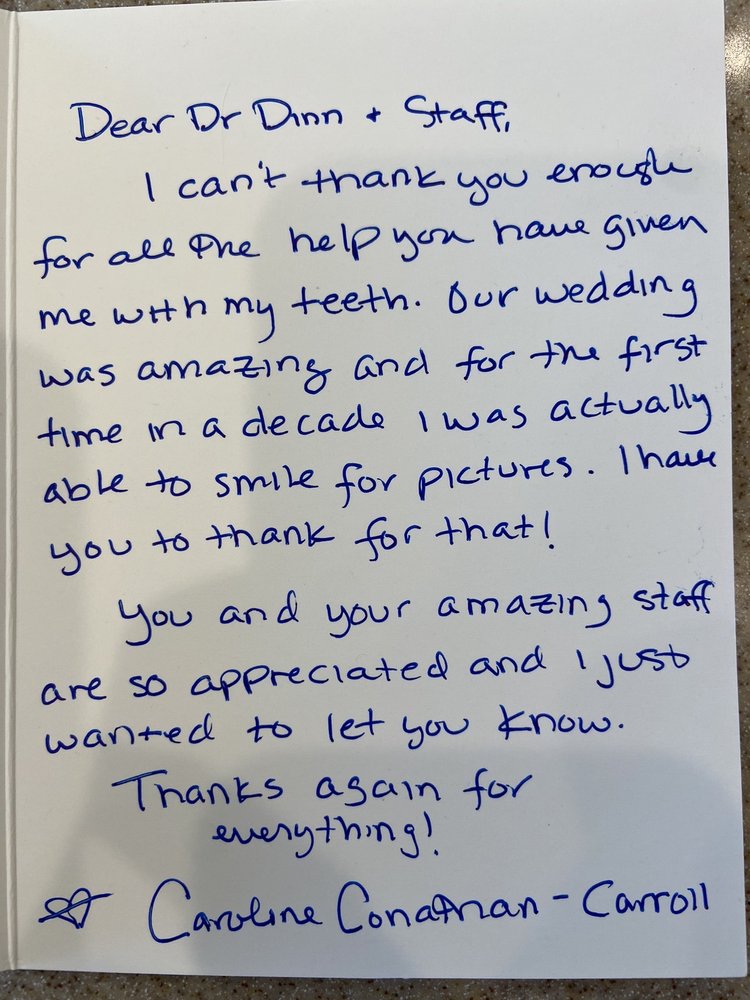 Dear Dr Dinn + Staff,
I can't thank you enough
for all the help you have given
me with my teeth. Our wedding
was amazing and for the first
time in a decade I was actually
able to smile for pictures. I have
you to thank for that!
You and your amazing staff
are so appreciated and I just
wanted to let you know.
Thanks again for
everything!
Caroline Conathan-Carroll